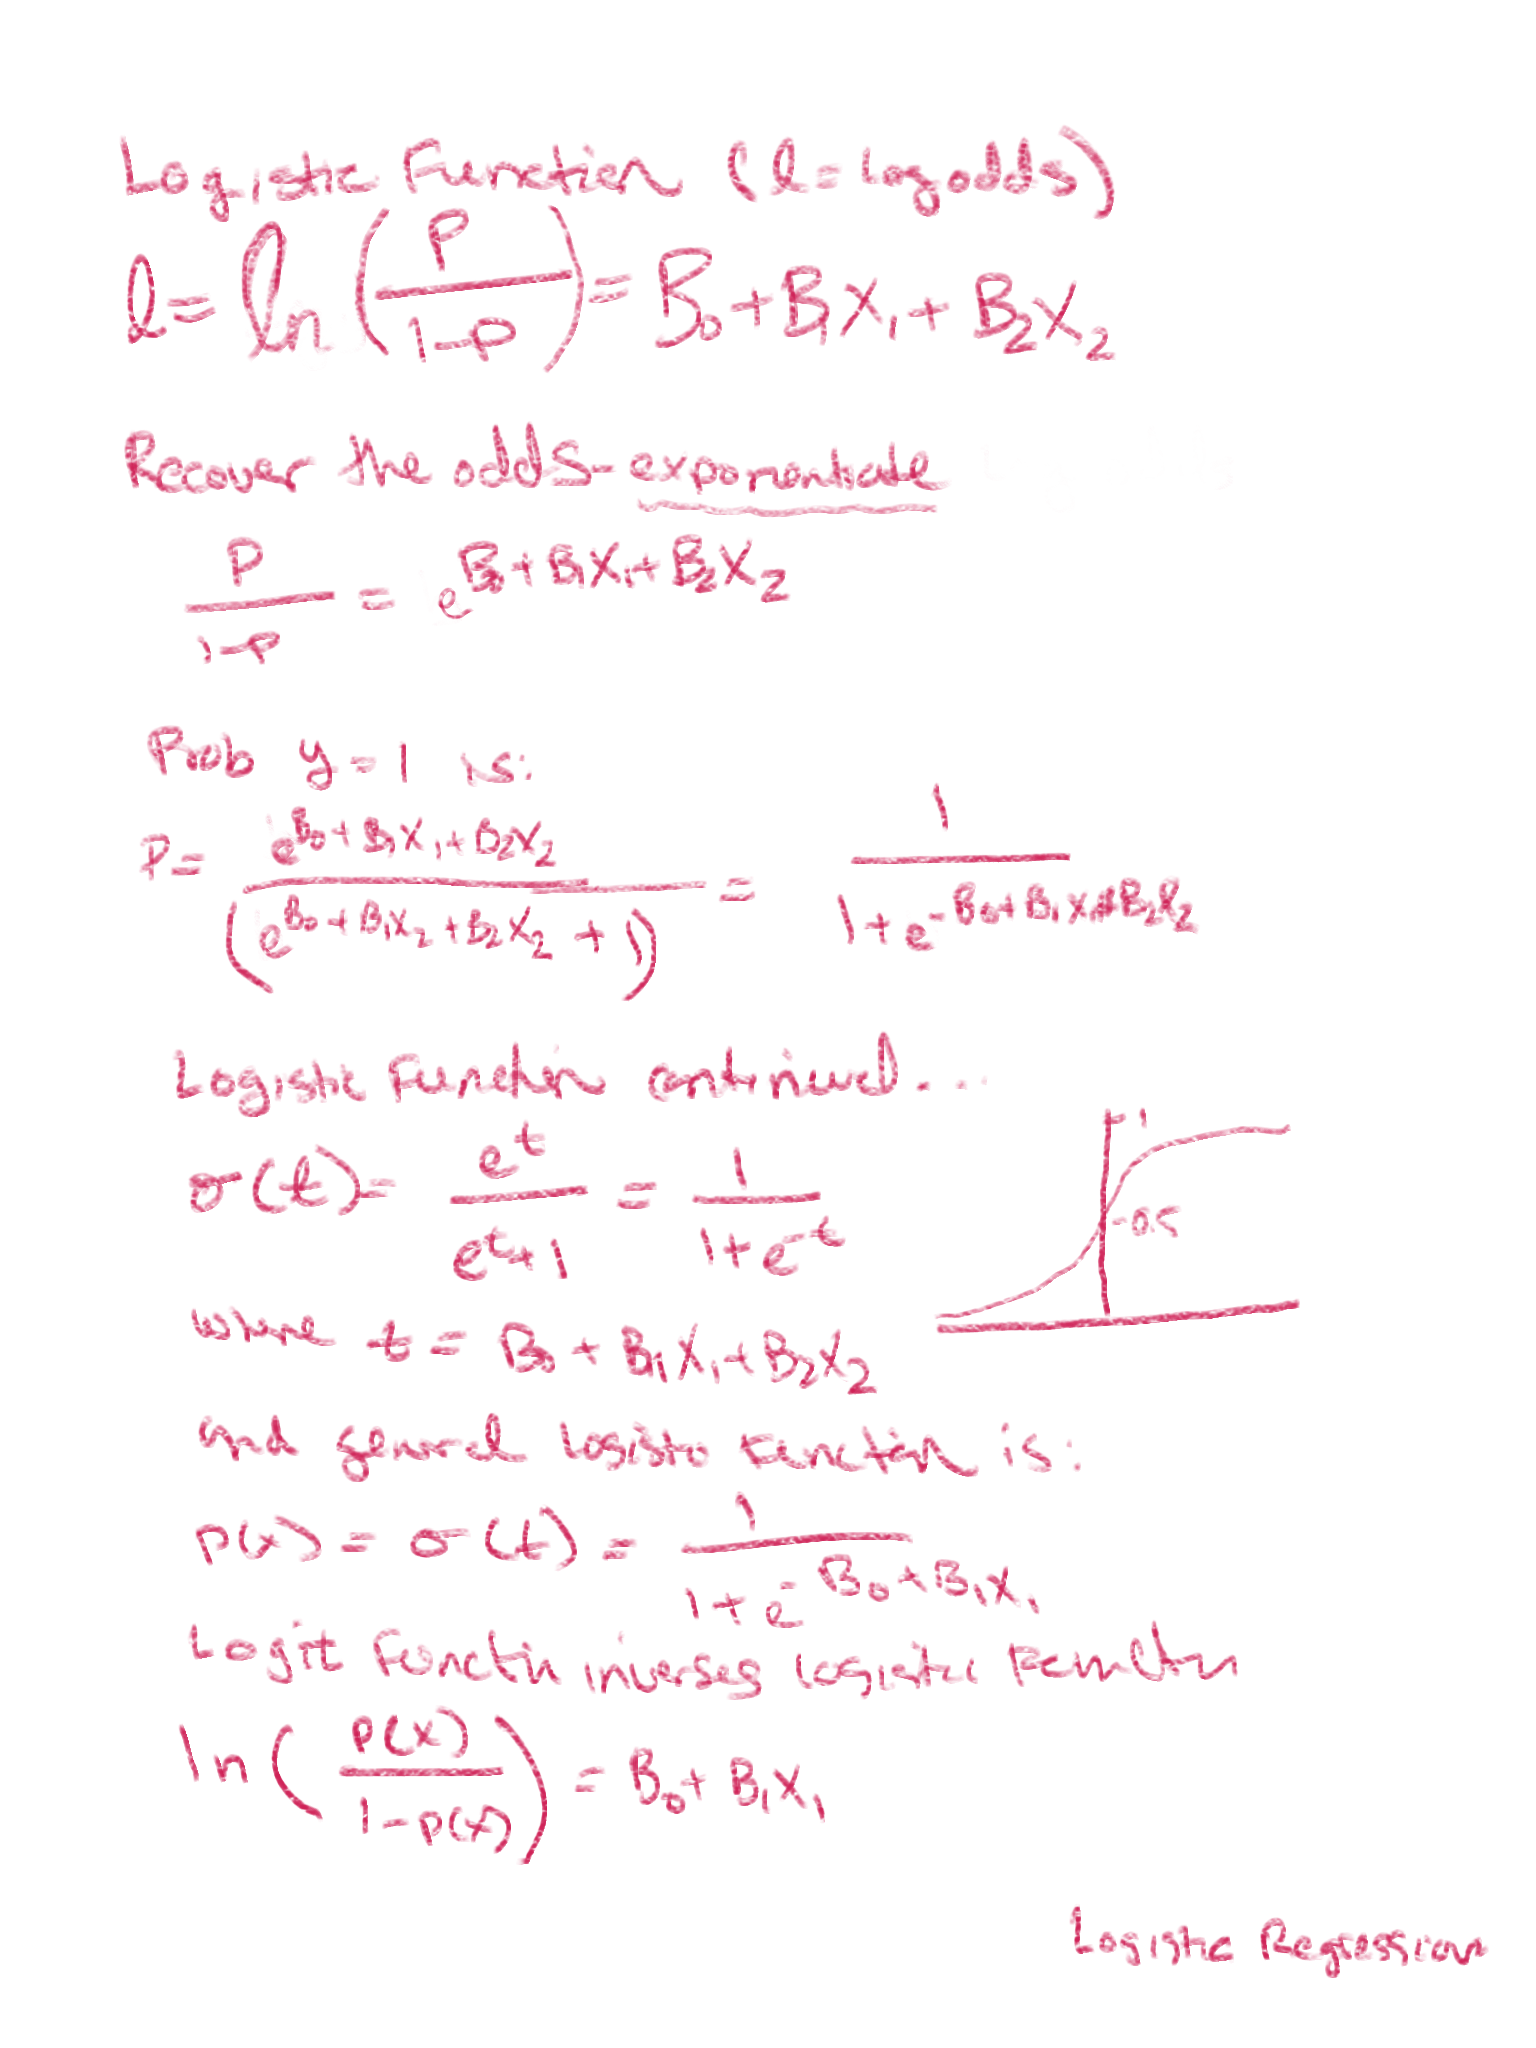 Logistic Function (l = log odds)
l = ln (P / 1-P) = B₀ + B₁X₁ + B₂X₂
Recover the odds - exponentiate
P / 1-P = e^(B₀ + B₁X₁ + B₂X₂)
Prob y = 1 is:
P = e^(B₀ + B₁X₁ + B₂X₂) / (e^(B₀ + B₁X₂ + B₂X₂) + 1) = 1 / 1 + e^-(B₀ + B₁X₁ + B₂X₂)
Logistic Function continued...
σ(t) = e^t / e^t + 1 = 1 / 1 + e^-t
1
-0.5
where t = B₀ + B₁X₁ + B₂X₂
and general logistic function is:
p(x) = σ(t) = 1 / 1 + e^- B₀ + B₁X₁
Logit Function inverses logistic Function
ln (P(X) / 1 - P(X)) = B₀ + B₁X₁
Logistic Regression